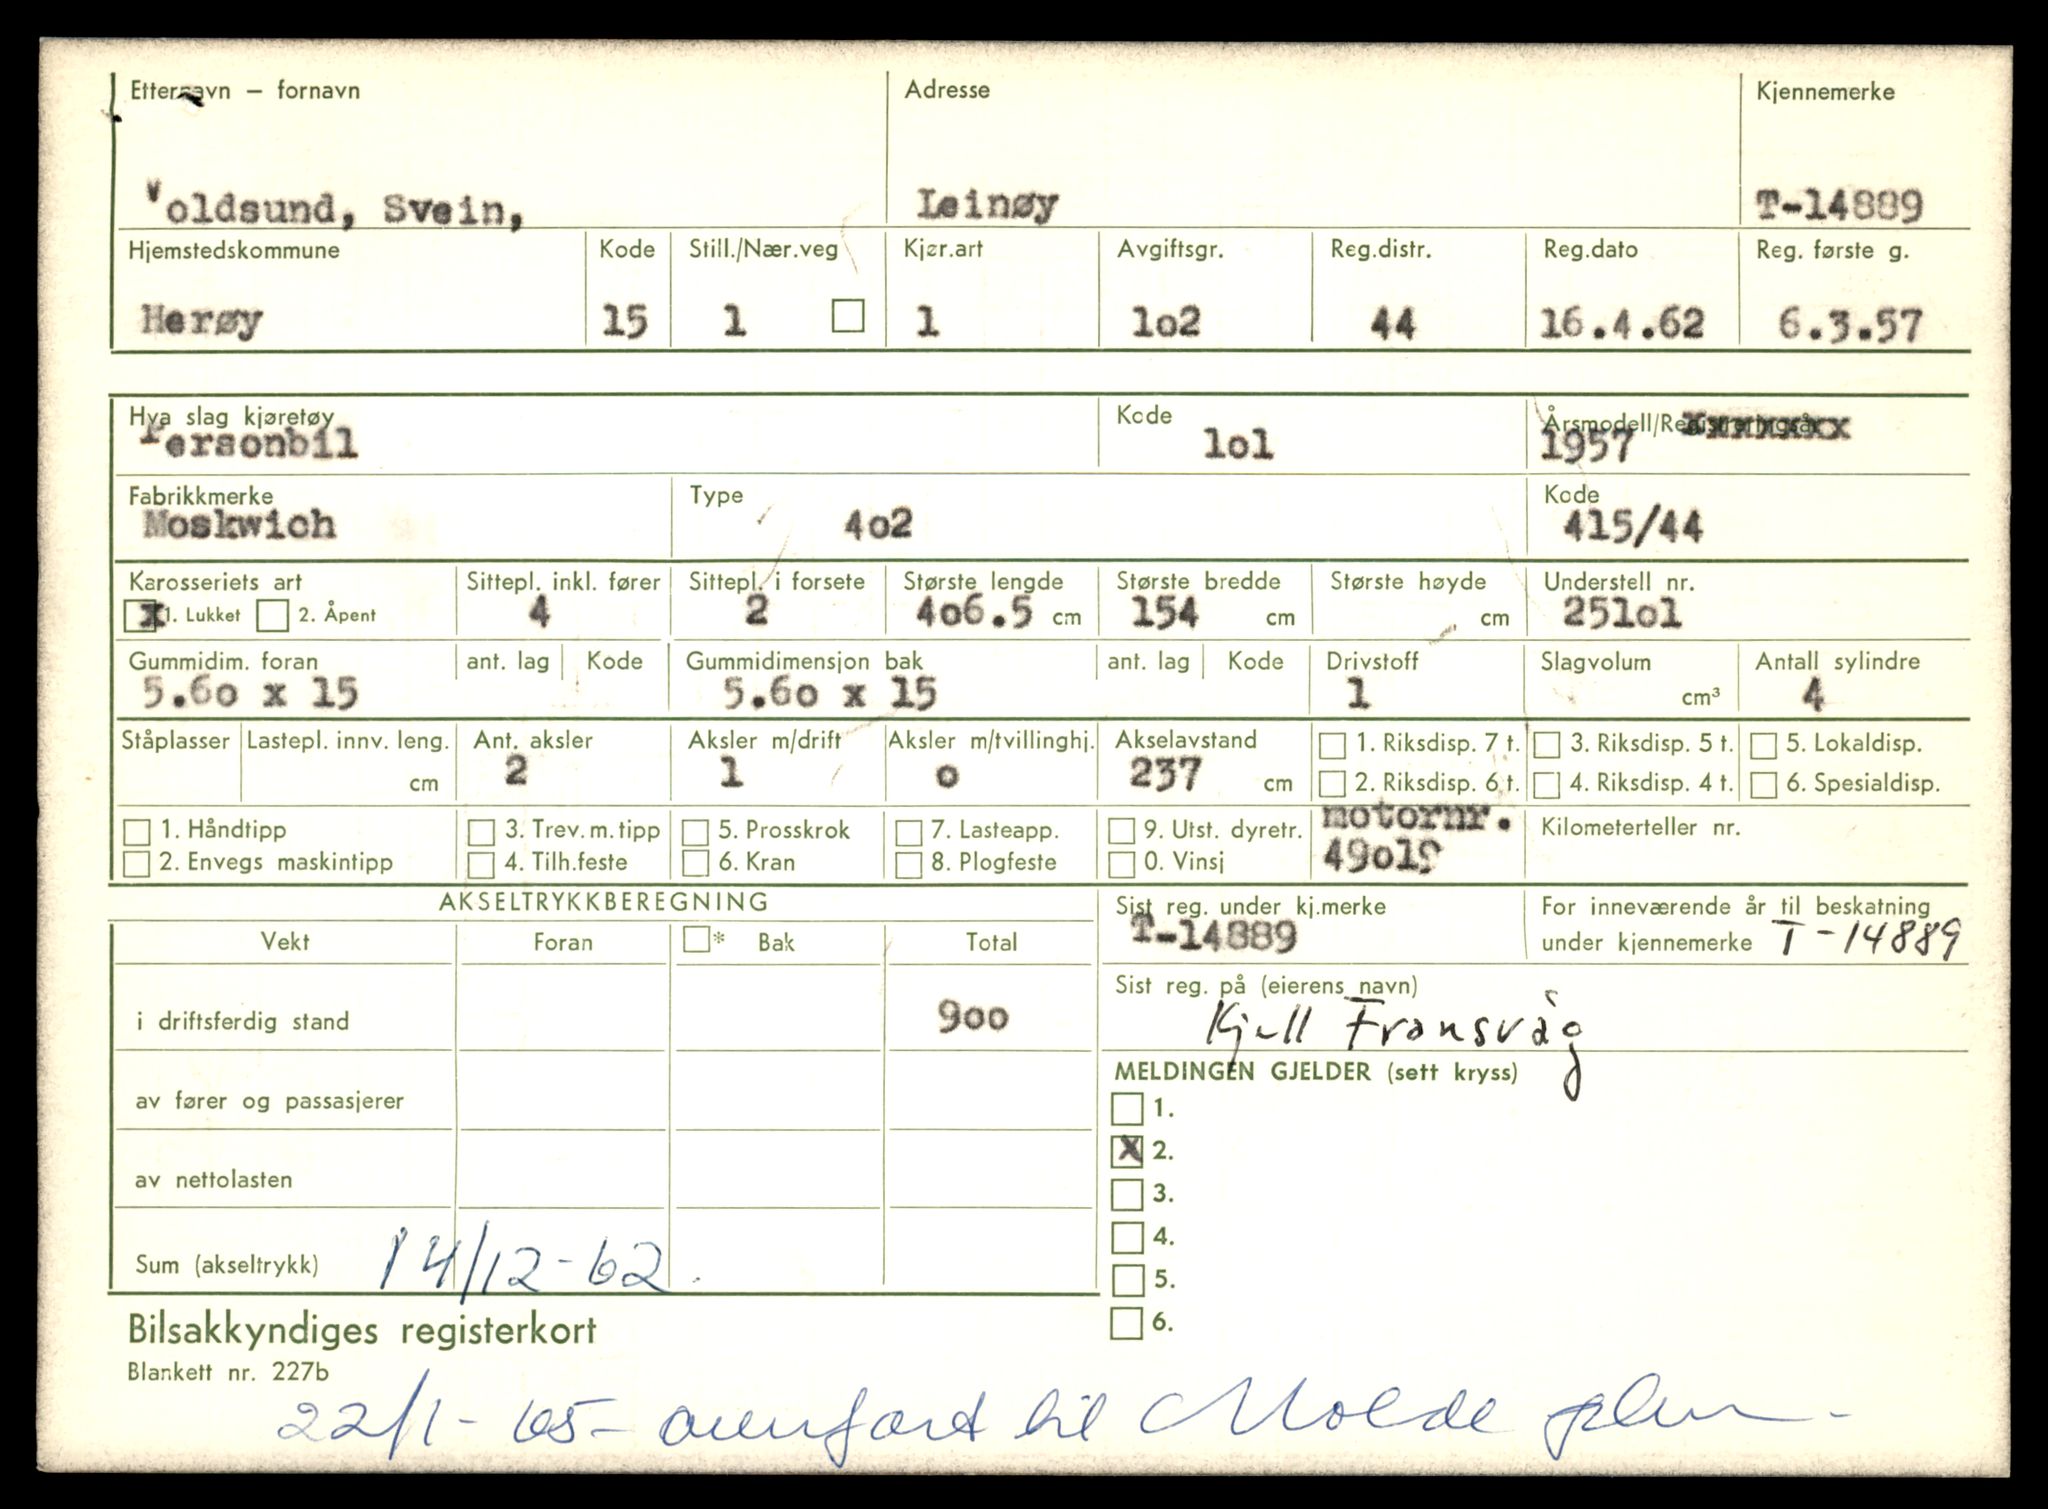 Etternavn – fornavn Adresse Kjennemerke
Voldsund, Svein, Leinøy T-14889
Hjemstedskommune Kode Still./Nær.veg Kjør.art Avgiftsgr. Reg.distr. Reg.dato Reg. første g.
Herøy 15 1 1 1o2 44 16.4.62 6.3.57
Hva slag kjøretøy Kode Årsmodell/Registreringsår
Personbil 1o1 1957 xxxxxxx
Fabrikkmerke Type Kode
Moskwich 4o2 415/44
Karosseriets art Sittepl. inkl. fører Sittepl. i forsete Største lengde Største bredde Største høyde Understell nr.
x 1. Lukket 2. Åpent 4 2 4o6.5 cm 154 cm cm 251o1
Gummidim. foran ant. lag Kode Gummidimensjon bak ant. lag Kode Drivstoff Slagvolum Antall sylindre
5.6o x 15 5.6o x 15 1 cm³ 4
Ståplasser Lastepl. innv. leng. Ant. aksler Aksler m/drift Aksler m/tvillinghj. Akselavstand 1. Riksdisp. 7 t. 3. Riksdisp. 5 t. 5. Lokaldisp.
cm 2 1 o 237 cm 2. Riksdisp. 6 t. 4. Riksdisp. 4 t. 6. Spesialdisp.
1. Håndtipp 3. Trev. m. tipp 5. Prosskrok 7. Lasteapp. 9. Utst. dyretr. motornr. Kilometerteller nr.
2. Envegs maskintipp 4. Tilh.feste 6. Kran 8. Plogfeste 0. Vinsj 49o19
AKSELTRYKKBEREGNING Sist reg. under kj.merke For inneværende år til beskatning
Vekt Foran * Bak Total T-14889 under kjennemerke T-14889
Sist reg. på (eierens navn)
i driftsferdig stand 9oo Kjell Fransvåg
MELDINGEN GJELDER (sett kryss)
av fører og passasjerer 1.
X 2.
av nettolasten 3.
4.
Sum (akseltrykk) 14/12-62. 5.
6.
Bilsakkyndiges registerkort
Blankett nr. 227b
22/1-65- overført til Molde